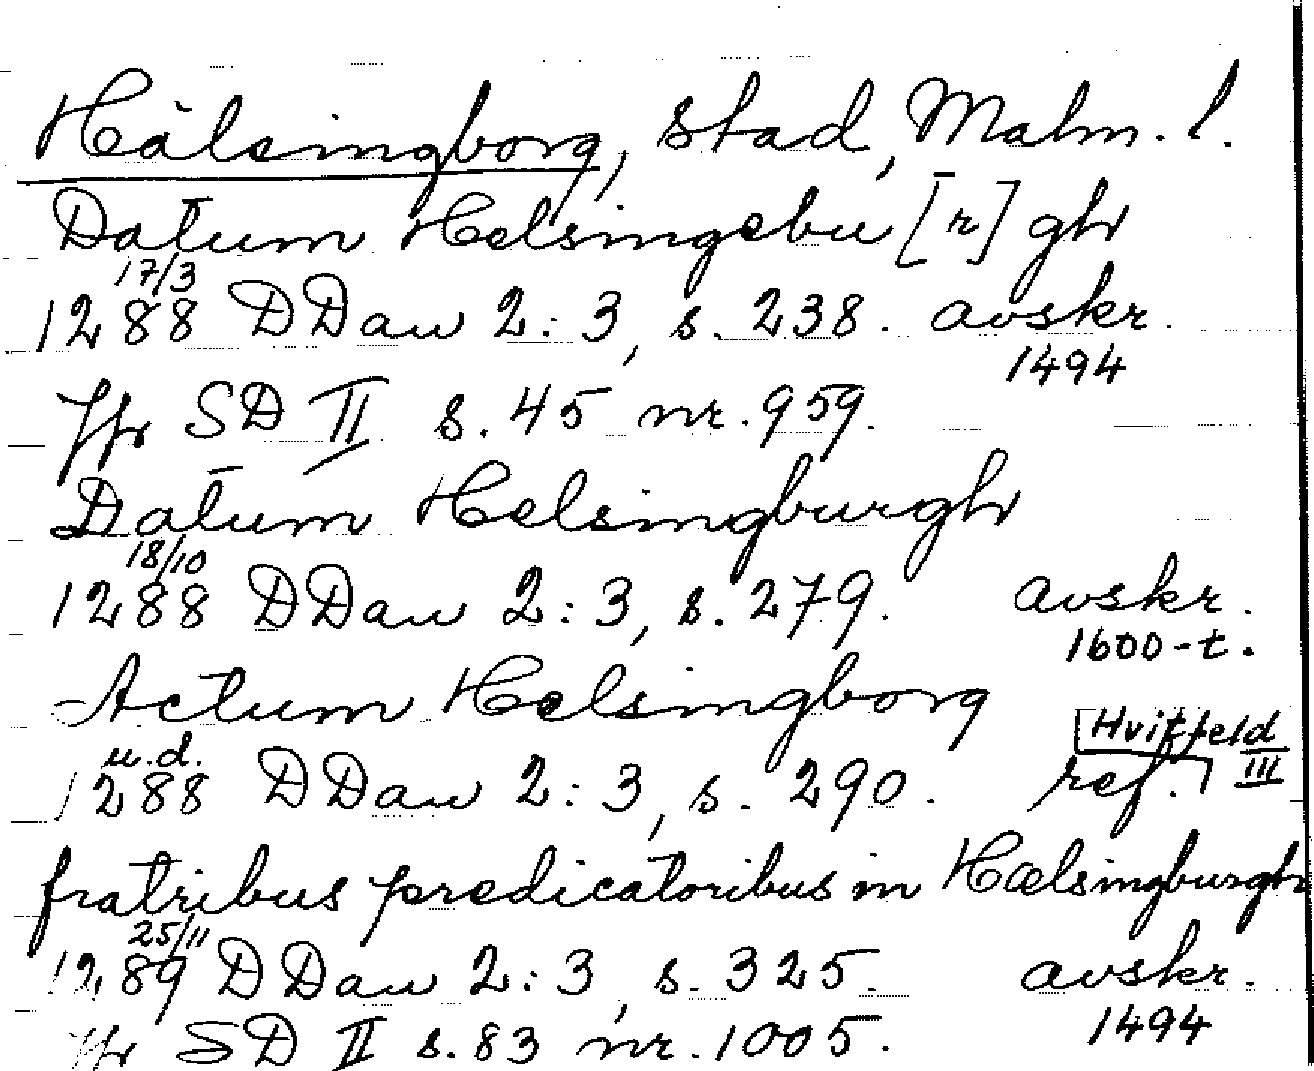 Hälsingborg, stad, Malm. l.
Datum Helsingebu [r] gh
17/3
1288 DDan 2:3, s. 238. avskr.
1494
Jfr SD II s. 45 nr. 959.
Datum Helsingburgh
18/10
1288 DDan 2:3, s. 279. avskr.
1600-t.
Actum Helsingborg
u.d. [Hvitfeld III
1288 DDan 2:3, s. 290. ref.]
fratribus predicatoribus in Hælsingburgh
25/11
1289 DDan 2:3, s. 325. avskr.
1494
Jfr SD II s. 83 nr. 1005.